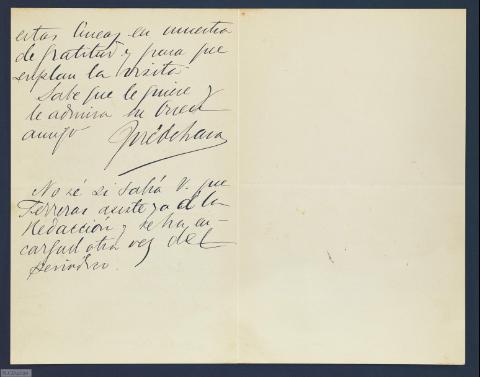 estas líneas en muestra
de gratitud y para que
suplan la visita.
Sabe que le quiere y
le admira su buen
amigo
No sé si sabrá V. que
Ferreras asiste ya a la
Redacción y se ha en-
cargado otra vez del
periódico.